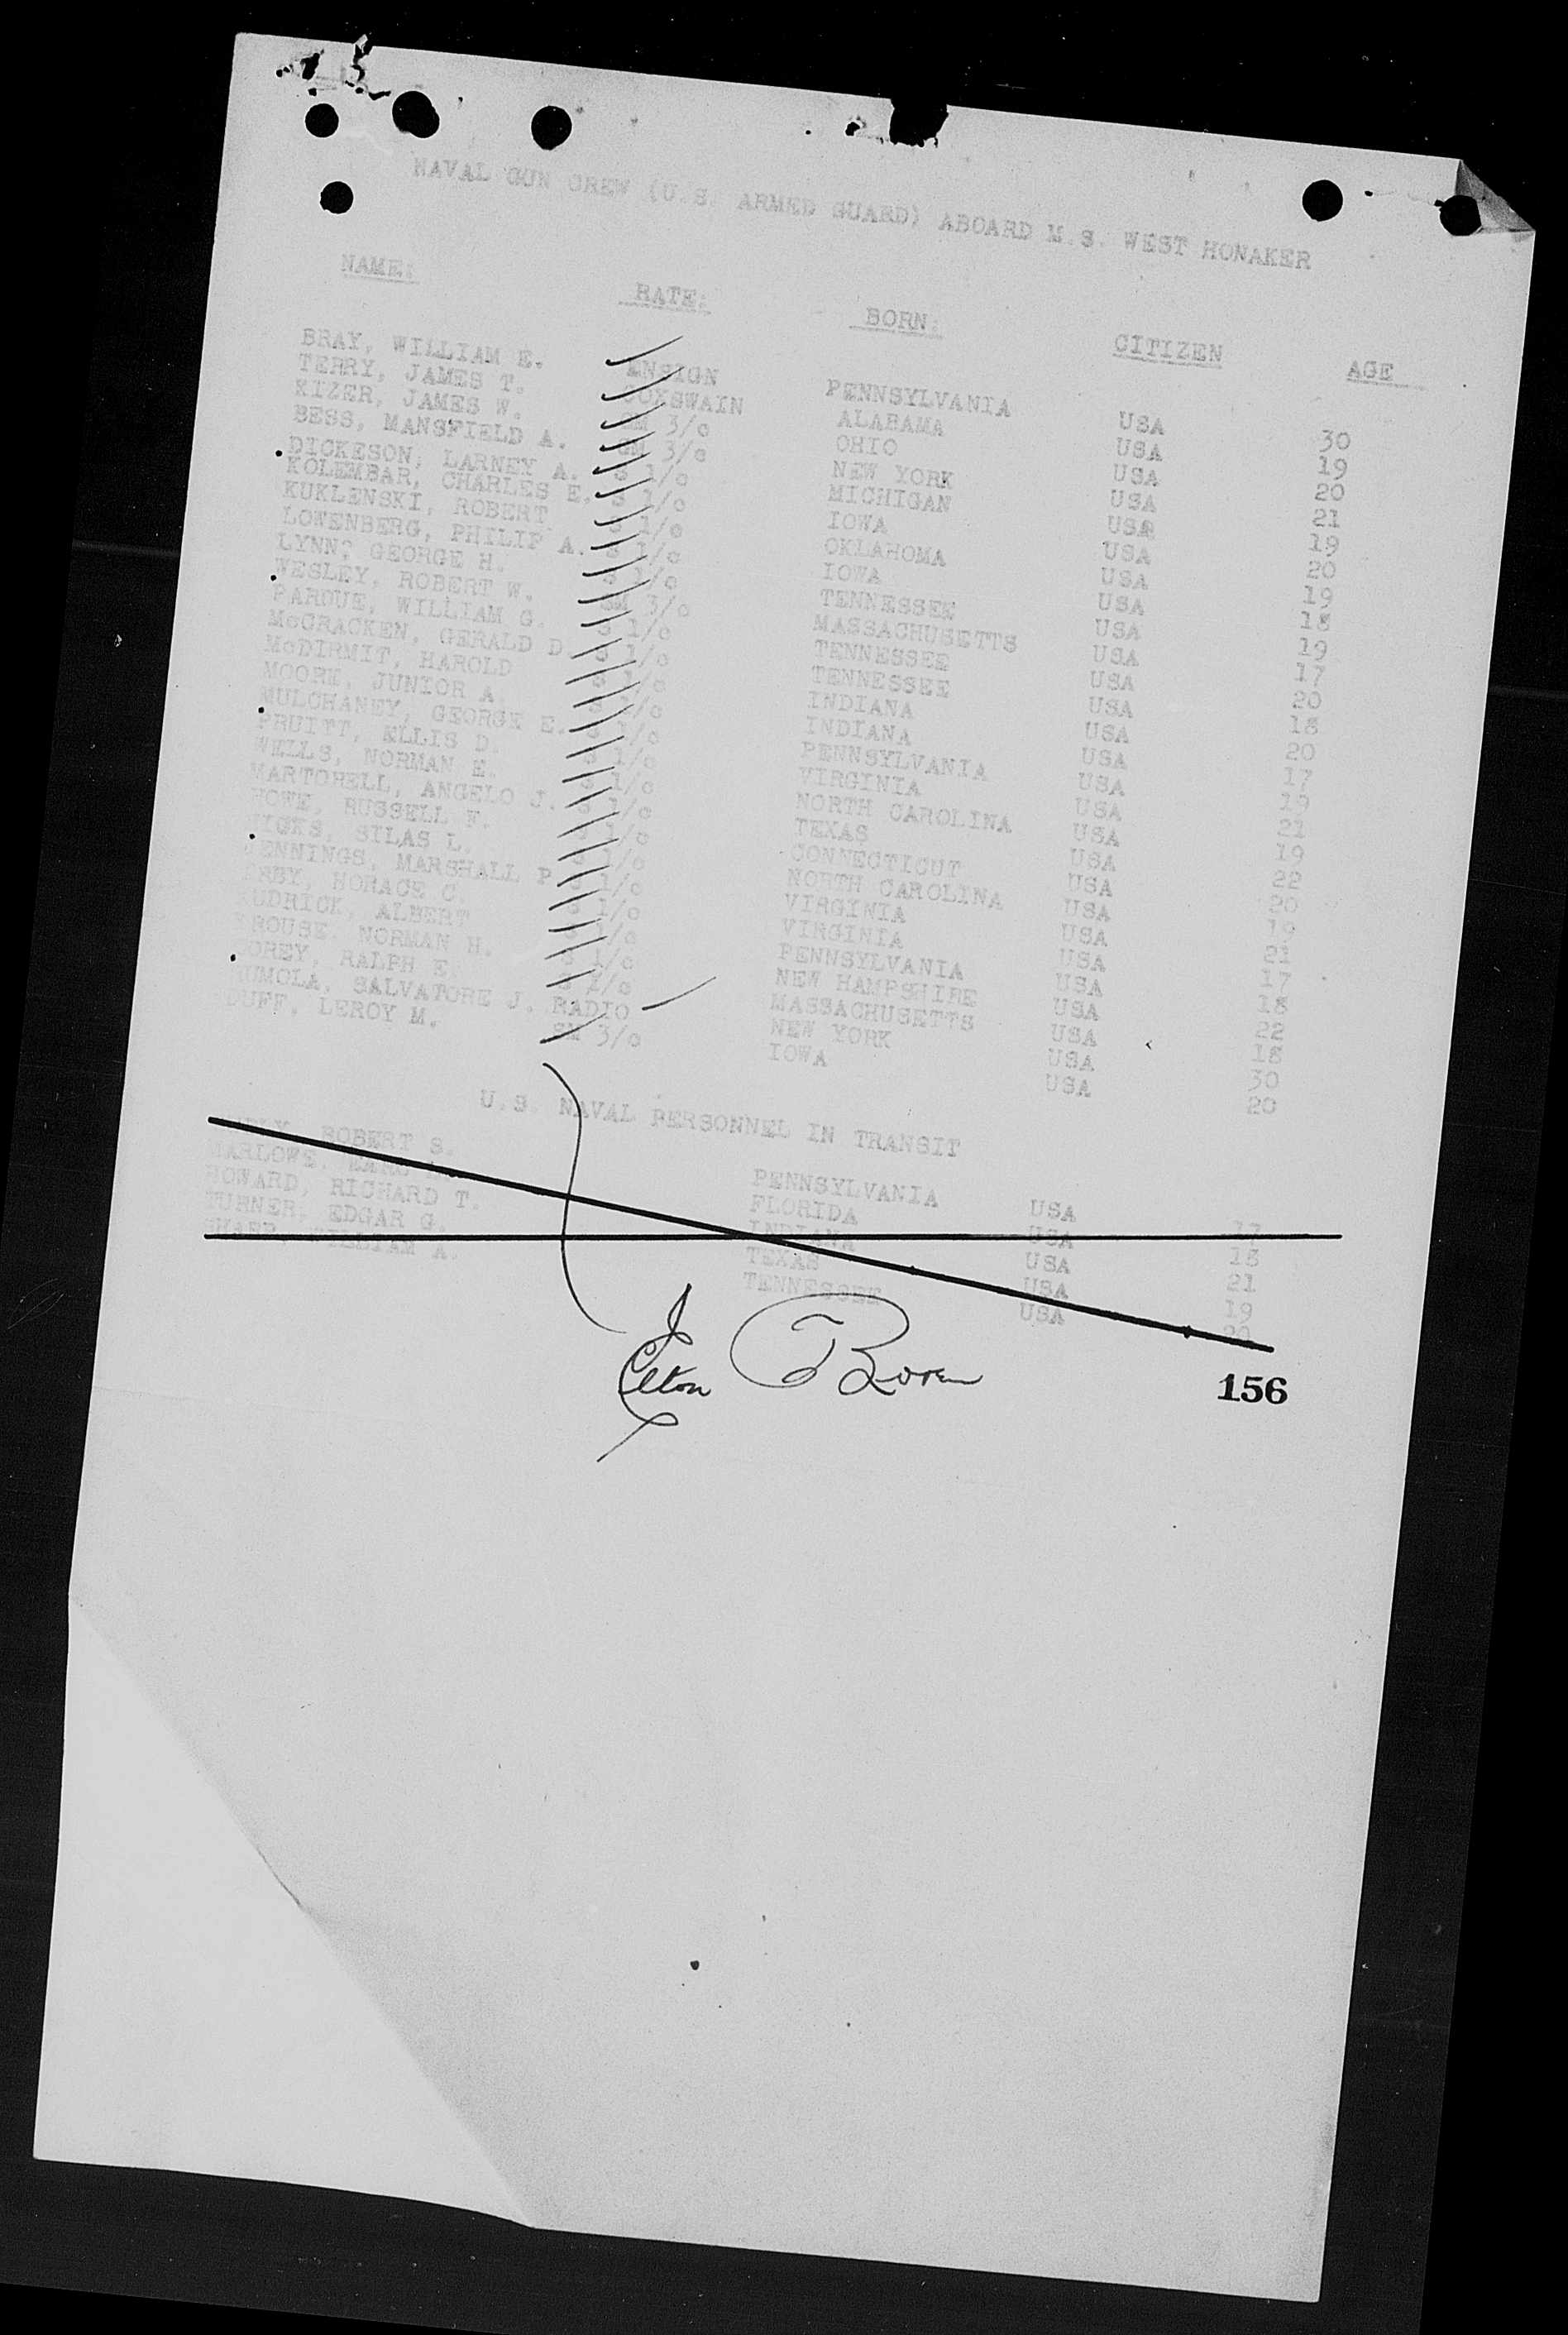 NAVAL GUN CREW (U.S. ARMED GUARD) ABOARD M.S. WEST HONAKER
NAME: RATE: BORN: CITIZEN AGE
BRAY, WILLIAM E. ENSIGN PENNSYLVANIA USA 30
TERRY, JAMES T. COXSWAIN ALABAMA USA 19
KIZER, JAMES W. GM 3/c OHIO USA 20
BESS, MANSFIELD A. GM 3/c NEW YORK USA 21
DICKESON, LARNEY A. S 1/c MICHIGAN USA 19
KOLEMBAR, CHARLES E. S 1/c IOWA USA 20
KUKLENSKI, ROBERT S 1/c OKLAHOMA USA 19
LOWENBERG, PHILIP A. S 1/c IOWA USA 18
LYNN, GEORGE H. S 1/c TENNESSEE USA 19
WESLEY, ROBERT W. SM 3/c MASSACHUSETTS USA 17
PARDUE, WILLIAM G. S 1/c TENNESSEE USA 20
McCRACKEN, GERALD D. S 1/c TENNESSEE USA 18
McDIRMIT, HAROLD S 1/c INDIANA USA 20
MOORE, JUNIOR A. S 1/c INDIANA USA 17
MULCHANEY, GEORGE E. S 1/c PENNSYLVANIA USA 19
PRUITT, ELLIS D. S 1/c VIRGINIA USA 21
WELLS, NORMAN E. S 1/c NORTH CAROLINA USA 19
MARTORELL, ANGELO J. S 1/c TEXAS USA 22
HOWE, RUSSELL F. S 1/c CONNECTICUT USA 20
HICKS, SILAS L. S 1/c NORTH CAROLINA USA 19
JENNINGS, MARSHALL P. S 1/c VIRGINIA USA 21
HORACE C. S 1/c VIRGINIA USA 17
KUDRICK, ALBERT S 1/c PENNSYLVANIA USA 18
KROUSE, NORMAN H. S 1/c NEW HAMPSHIRE USA 22
COREY, RALPH E. S 2/c MASSACHUSETTS USA 18
SALVATORE J. RADIO NEW YORK USA 30
DUFF, LEROY M. SM 3/c IOWA USA 20
U.S. NAVAL PERSONNEL IN TRANSIT
ROBERT S. PENNSYLVANIA USA 17
MARLOWE, FLORIDA USA 18
HOWARD, RICHARD T. INDIANA USA 21
TURNER, EDGAR G. TEXAS USA 19
SHARP, WILLIAM A. TENNESSEE USA 20
156